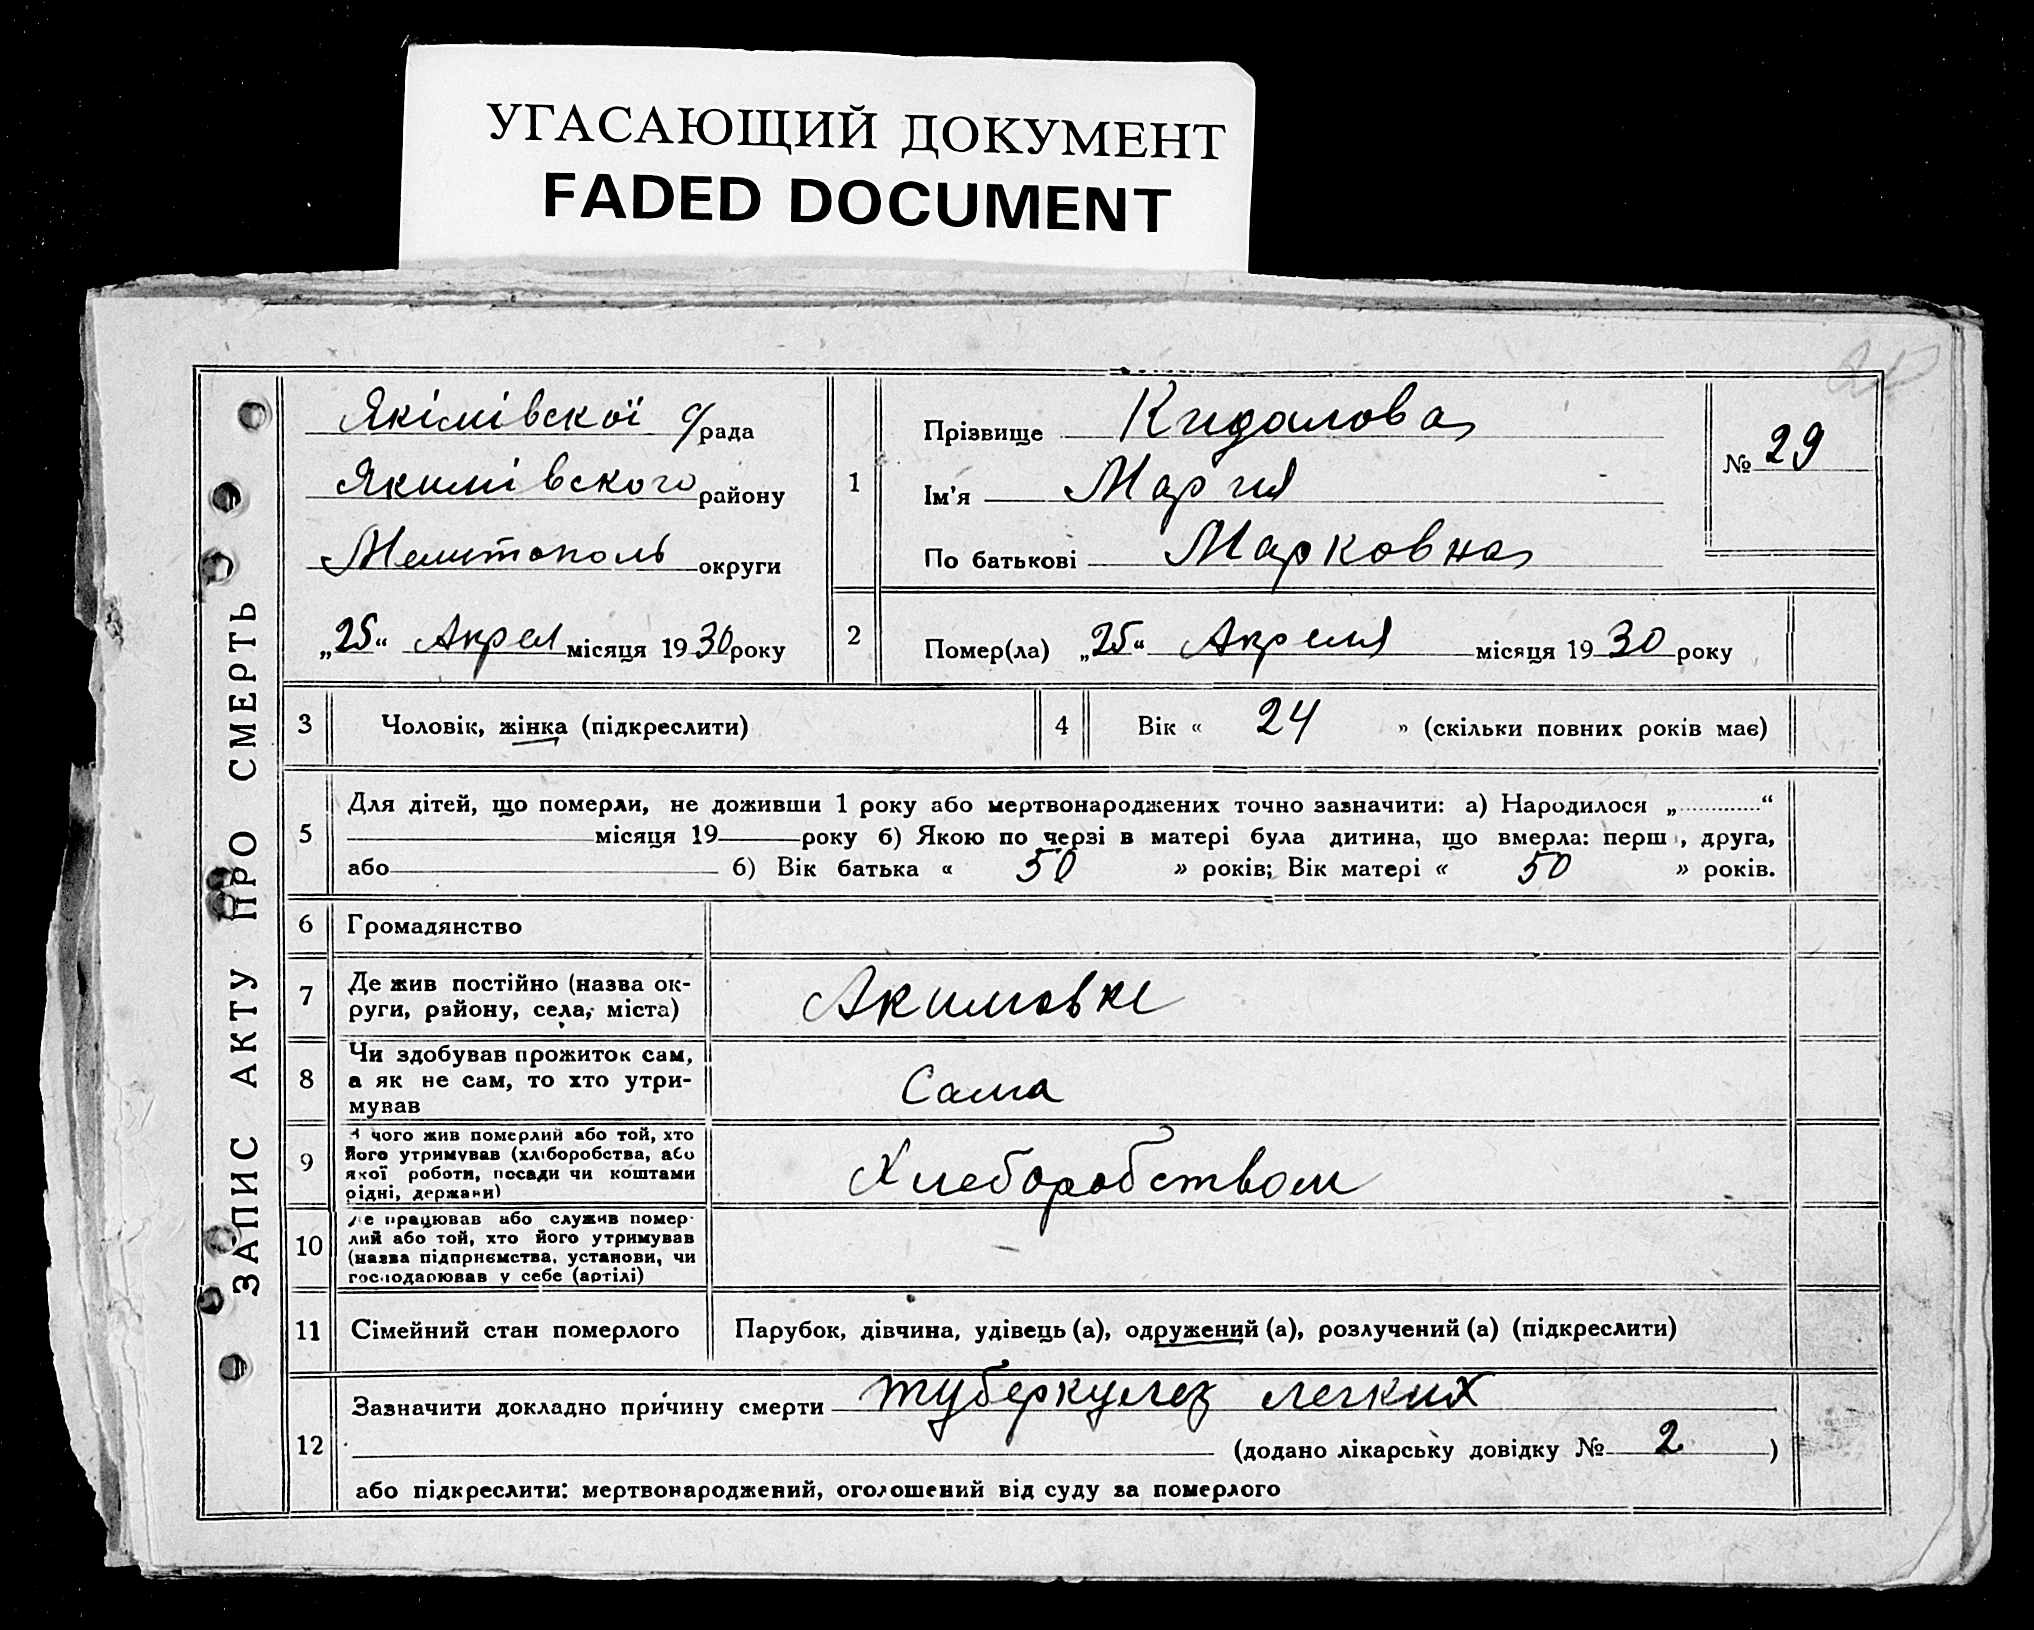 УГАСАЮЩИЙ ДОКУМЕНТ
FADED DOCUMENT
ЗАПИС АКТУ ПРО СМЕРТЬ
Якімівскої с/рада
Якимівского району
Мелитополь округи
„25“ Апрел місяця 1930 року
1
Прізвище Кидалова
Ім'я Мария
По батькові Марковна
№ 29
2
Помер(ла) „25“ Апреля місяця 1930 року
3 Чоловік, жінка (підкреслити)
4 Вік « 24 » (скільки повних років має)
5
Для дітей, що померли, не доживши 1 року або мертвонароджених точно зазначити: а) Народилося „ “
місяця 19 року б) Якою по черзі в матері була дитина, що вмерла: перш , друга,
або б) Вік батька « 50 » років; Вік матері « 50 » років.
6 Громадянство
7
Де жив постійно (назва ок-
руги, району, села, міста)
Акимовке
8
Чи здобував прожиток сам,
а як не сам, то хто утри-
мував
Сама
9
З чого жив померлий або той, хто
його утримував (хліборобства, або
якої роботи, посади чи коштами
рідні, держави)
Хлеборобством
10
Де працював або служив помер-
лий або той, хто його утримував
(назва підприємства, установи, чи
господарював у себе (артілі)
11 Сімейний стан померлого Парубок, дівчина, удівець (а), одружений (а), розлучений (а) (підкреслити)
12
Зазначити докладно причину смерти туберкулез легких
(додано лікарську довідку № 2 )
або підкреслити: мертвонароджений, оголошений від суду за померлого